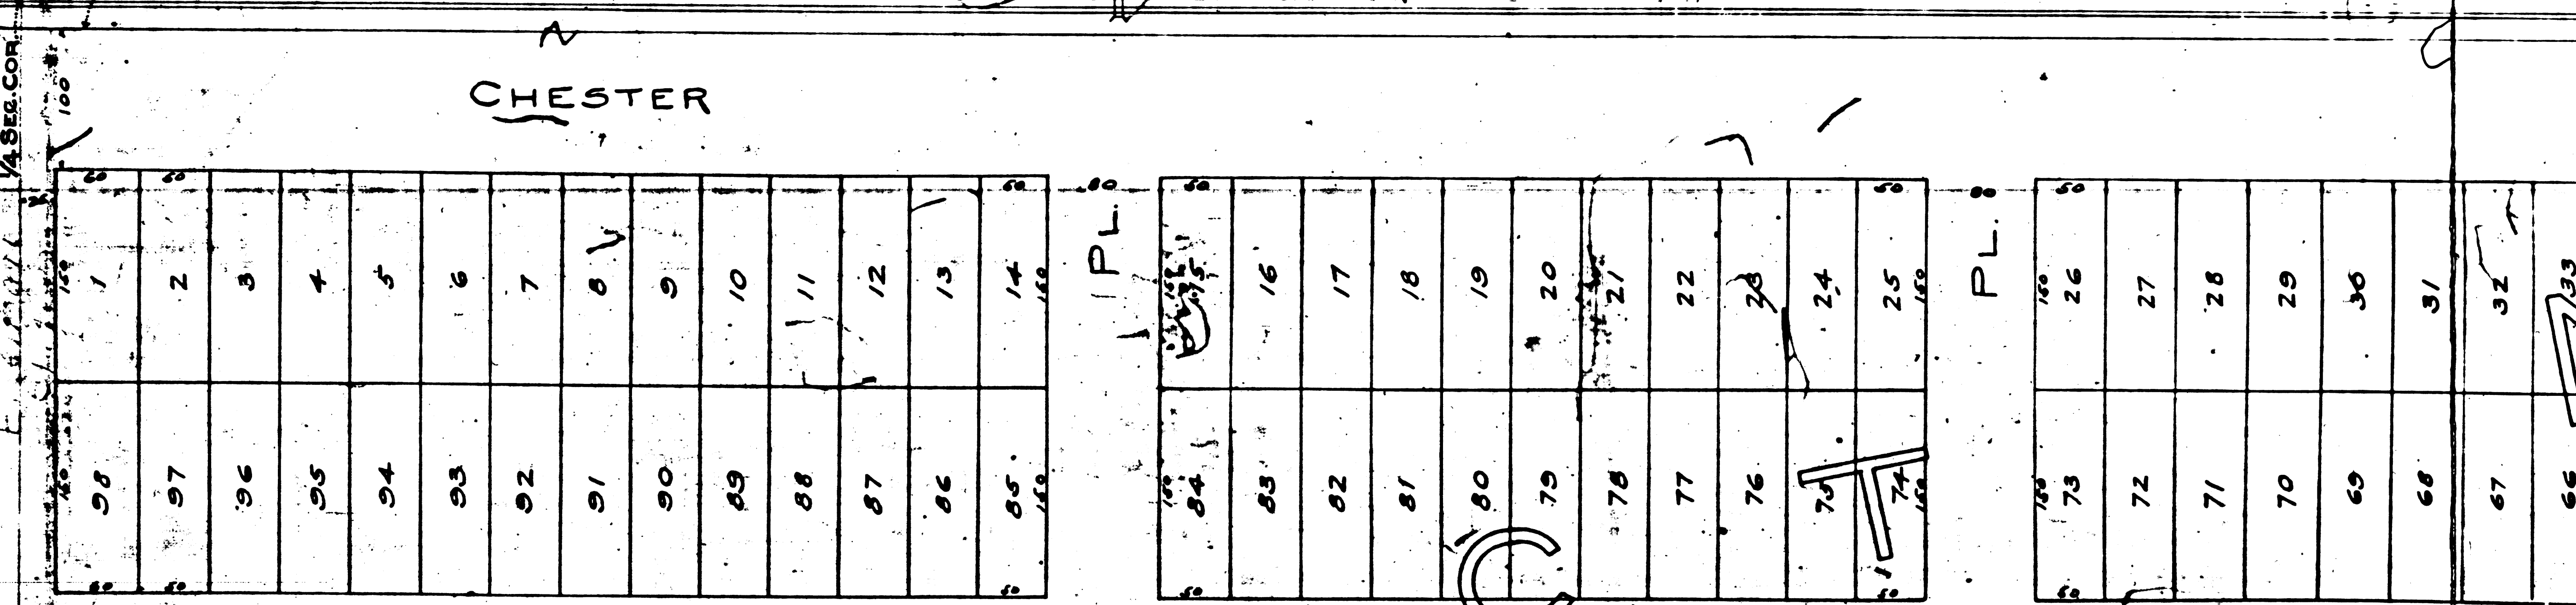 1/4 SEC. COR.
100
CHESTER
60 60 50 80 50 50 80 50
1 2 3 4 5 6 7 8 9 10 11 12 13 14
150 150
PL.
15 16 17 18 19 20 21 22 23 24 25
150 150
PL.
26 27 28 29 30 31 32 33
150
98 97 96 95 94 93 92 91 90 89 88 87 86 85
150 150
84 83 82 81 80 79 78 77 76 75 74
150 150
73 72 71 70 69 68 67 66
150
60 50 50 50 50 50
C T